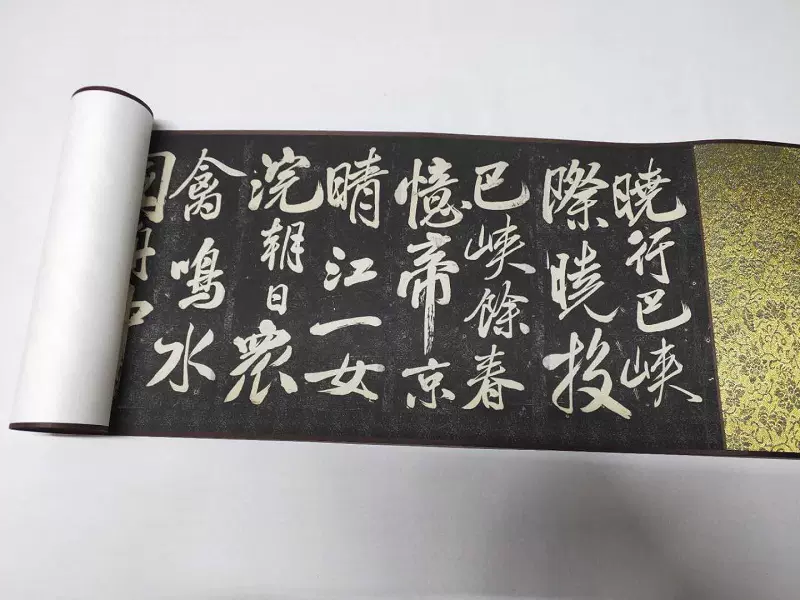 曉行巴峽
際曉投
巴峽餘春
憶帝京
晴江一女
浣朝日眾
禽鳴水
國